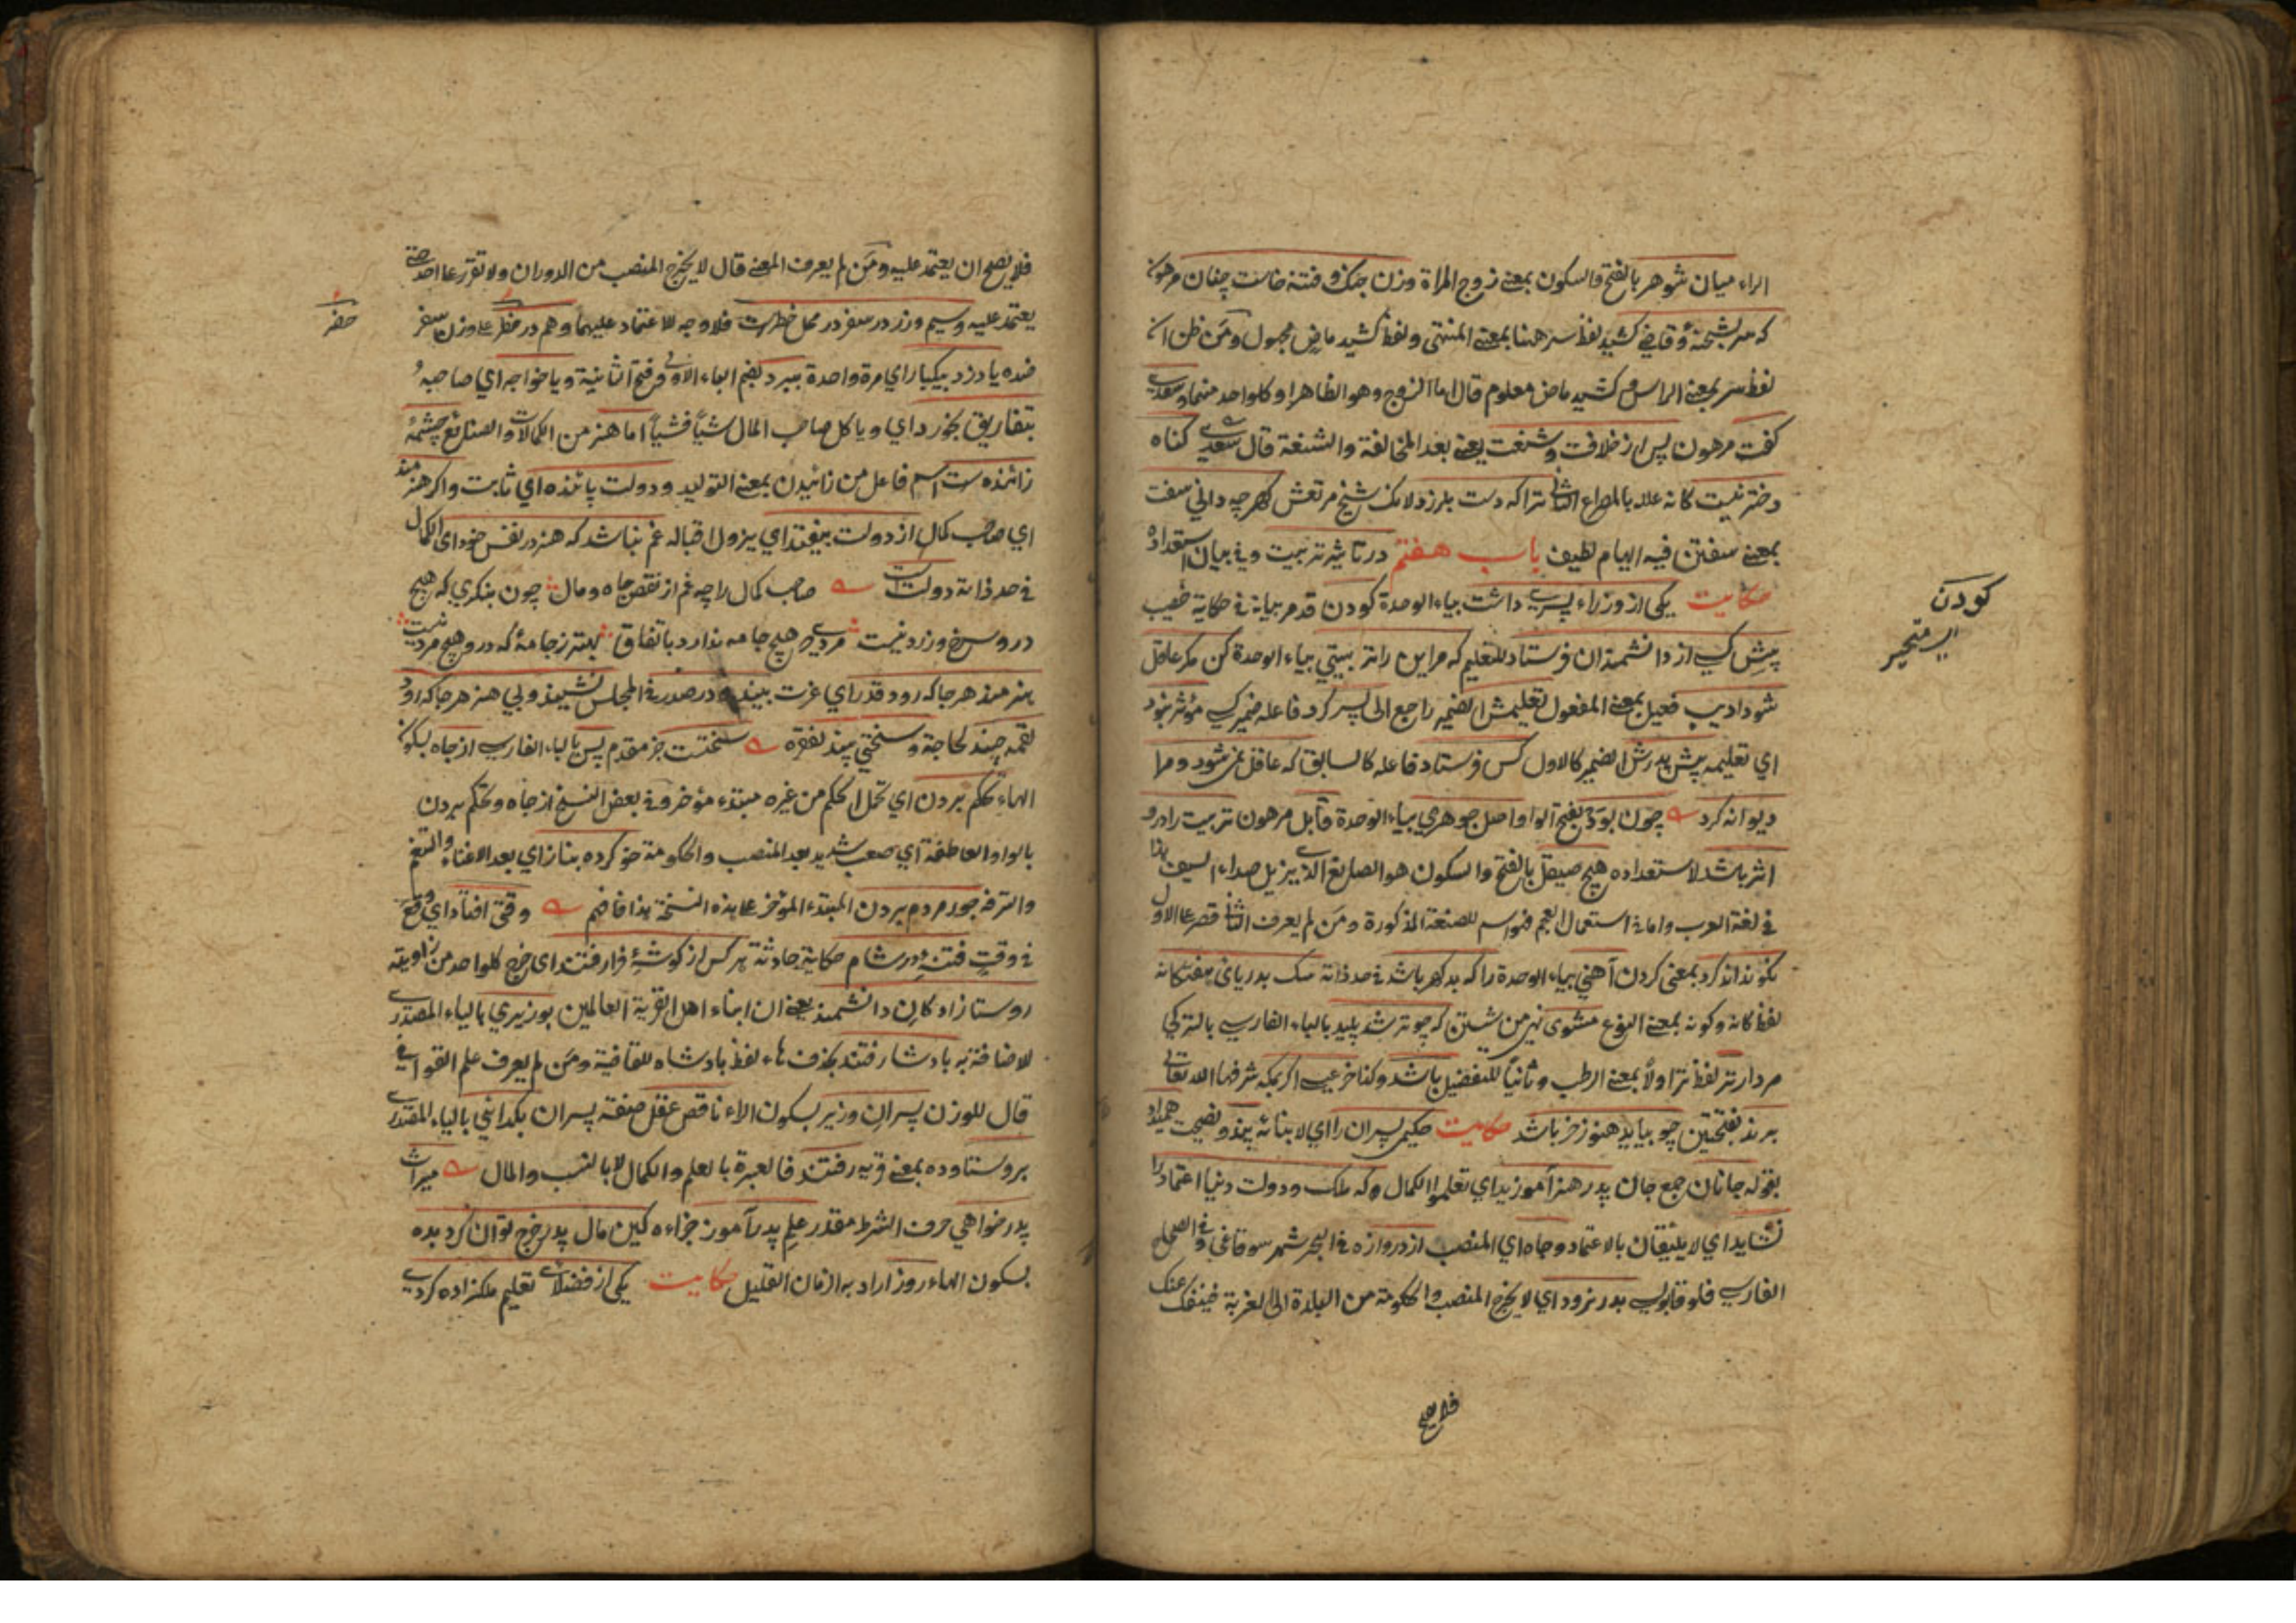 الراء ميان شوهر بالفتح فالسكون بمعنى زوج المراة وزن جنك وفتنه خاست چنان مرهون
كه سر بشحنه وقاضي كشيد لفظ سر هنا بمعنى المنتهى ولفظ كشيد ماض مجهول ومن ظن ان
لفظ سر بمعنى الراس وكشيد ماض معلوم قال اما الزوج وهو الظاهر او كلواحد منهما وسعدي
كفت مرهون پس از خلافت وشنعت يعنى بعد المخالفة والشنعة قال سعدي كناه
دختر نيست كانه علله بالمصراع الثاني ترا كه دست بلرزد لانك شيخ مرتعش كهر چه داني سفت
بمعنى سفتن فيه ايهام لطيف باب هفتم در تاثير تربيت وفي بيان استعداد
حكايت يكى از وزراء پسري داشت بياء الوحدة كودن قد مر بيانه في حكاية خطيب
پيش كسي از دانشمندان فرستاد للتعليم كه مراين را تربيتي بياء الوحدة كن مكر عاقل
شود اديب فعيل بمعنى المفعول تعليمش الضمير راجع الى پسر كرد فاعله ضمير كسي مؤثر نبود
اي تعليمه پيش پدرش الضمير كالاول كس فرستاد فاعله كالسابق كه عاقل نمي شود ومرا
ديوانه كرد چون بود بفتح الواو اصل جوهري بياء الوحدة قابل مرهون تربيت را درو
اثر باشد لاستعداده هيچ صيقل بالفتح والسكون هو الصانع الذي يزيل صداء السيف هذا
في لغة العرب واما في استعمال العجم فهو اسم للصنعة المذكورة ومن لم يعرف الثاني قصر على الاول
نكو نداند كرد بمعنى كردن آهني بياء الوحدة را كه بد كهر باشد في حد ذاته سك بدرياى هفتكانه
لفظ كانه وكونه بمعنى النوع مشوى نهي من شستن كه چو تر شد پليد بالباء الفارسي بالتركي
مردار تر لفظ تر اولا بمعنى الرطب وثانيا للتفضيل باشد وكذا خر عيسى اكر بمكه شرفها الله تعالى
برند بفتحتين چو بيايد هنوز خر باشد حكايت حكيمى پسران را اي لابنائه پند ونصيحت هميداد
بقوله جانان جمع جان پدر هنر آموزيد اي تعلموا الكمال وكه ملك ودولت دنيا اعتماد را
نشايد اي لا يليقان بالاعتماد وجاه اي المنصب از دروازه في البحر شهر سوقاغى وفي الصحاح
الفارسي فلو قاپوسي بدر نرود اي لا يخرج المنصب والحكومة من البلدة الى الغربة فينفك عنك
فلا يصح
كودن
اي متحير
فلا يصح ان يعتمد عليه ومن لم يعرف المعنى قال لا يخرج المنصب من الدوران ولا تقرر على احد حتى
يعتمد عليه وسيم وزر در سفر در محل خطرست فلا وجه للاعتماد عليهما وهم در حضر على وزن سفر
حضر
ضده يا دزد بيكبار اي مرة واحدة ببرد بضم الباء الاولى وفتح الثانية ويا خواجه اي صاحبه
بتفاريق بخورد اي ويا كل صاحب المال شيأ فشيأ اما هنر من الكمالات والصنائع چشمهٔ
زائنده ست اسم فاعل من زائيدن بمعنى التوليد ودولت پائنده اي ثابت واكر هنرمند
اي صاحب كمال از دولت بيفتد اي يزول اقباله غم نباشد كه هنر در نفس خود اى الكمال
في حد ذاته دولت است صاحب كمال را چه غم از نقص جاه ومال چون بنكري كه هيچ
در و سرخ وزرد نيست مردي كه هيچ جامه ندارد باتفاق بهتر ز جامهٔ كه درو هيچ مرد نيست
هنرمند هر جا كه رود قدر اي عزت بيند ودر صدر في المجلس نشيند وبي هنر هر جا كه رود
لقمه چيند لحاجة وسختي بيند لفقره سختست خبر مقدم پس بالباء الفارسي از جاه بسكون
الهاء تحكم بردن اي تحمل الحكم من غيره مبتداء مؤخر وفي بعض النسخ از جاه وتحكم بردن
بالواو العاطفة اي صعب شديد بعد المنصب والحكومة خو كرده بناز اي بعد الاغناء والتنعم
والترفه جور مردم بردن المبتداء المؤخر على هذه النسخة هذا فافهم وقتى افتاد اي وقع
في وقت فتنهٔ در شام حكاية حادثة هر كس از كوشهٔ فرا رفتند اى خرج كلواحد من زاويته
روستا زادكان دانشمند يعنى ان ابناء اهل القرية العالمين بوزيري بالياء المصدري
للاضافة به بادشا رفتند بحذف هاء لفظ بادشاه للقافية ومن لم يعرف علم القوافي
قال للوزن پسران وزير بسكون الراء ناقص عقل صفة پسران بكدائي بالياء المصدري
بروستا وده بمعنى قريه رفتند فالعبرة بالعلم والكمال لا بالنسب والمال ميراث
پدر خواهي حرف الشرط مقدر علم پدر آموز جزاءه كين مال پدر خرج توان كرد بده
بسكون الهاء روز اراد به الزمان القليل حكايت يكى از فضلاء تعليم ملكزاده كردي